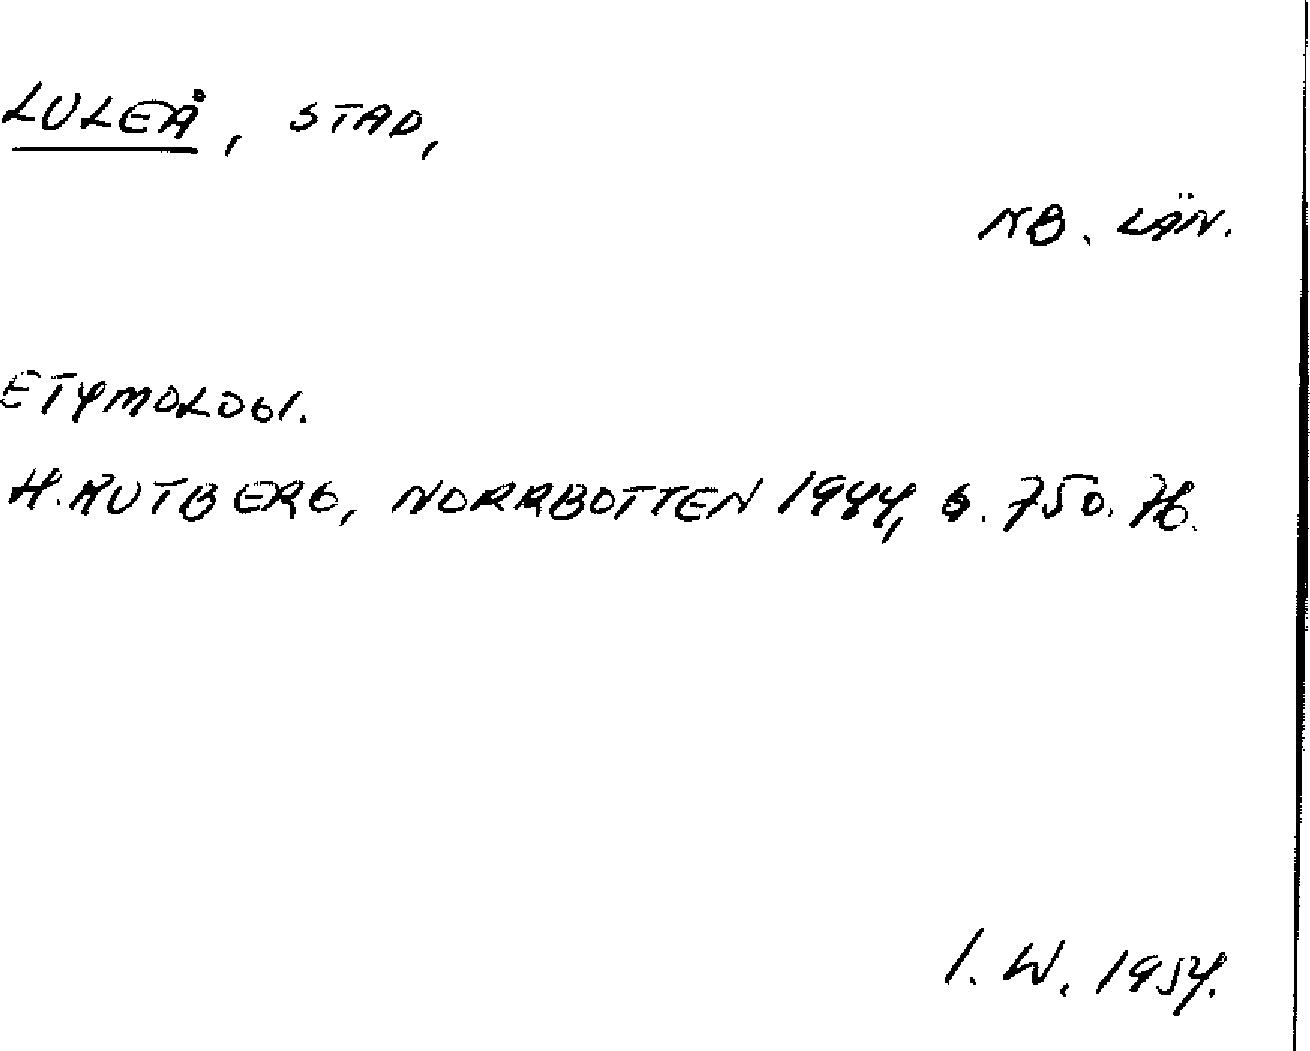 LULEÅ, STAD,
NB. LÄN.
ETYMOLOGI.
H. RUTBERG, NORRBOTTEN 1944, S. 750.
I. W. 1954.